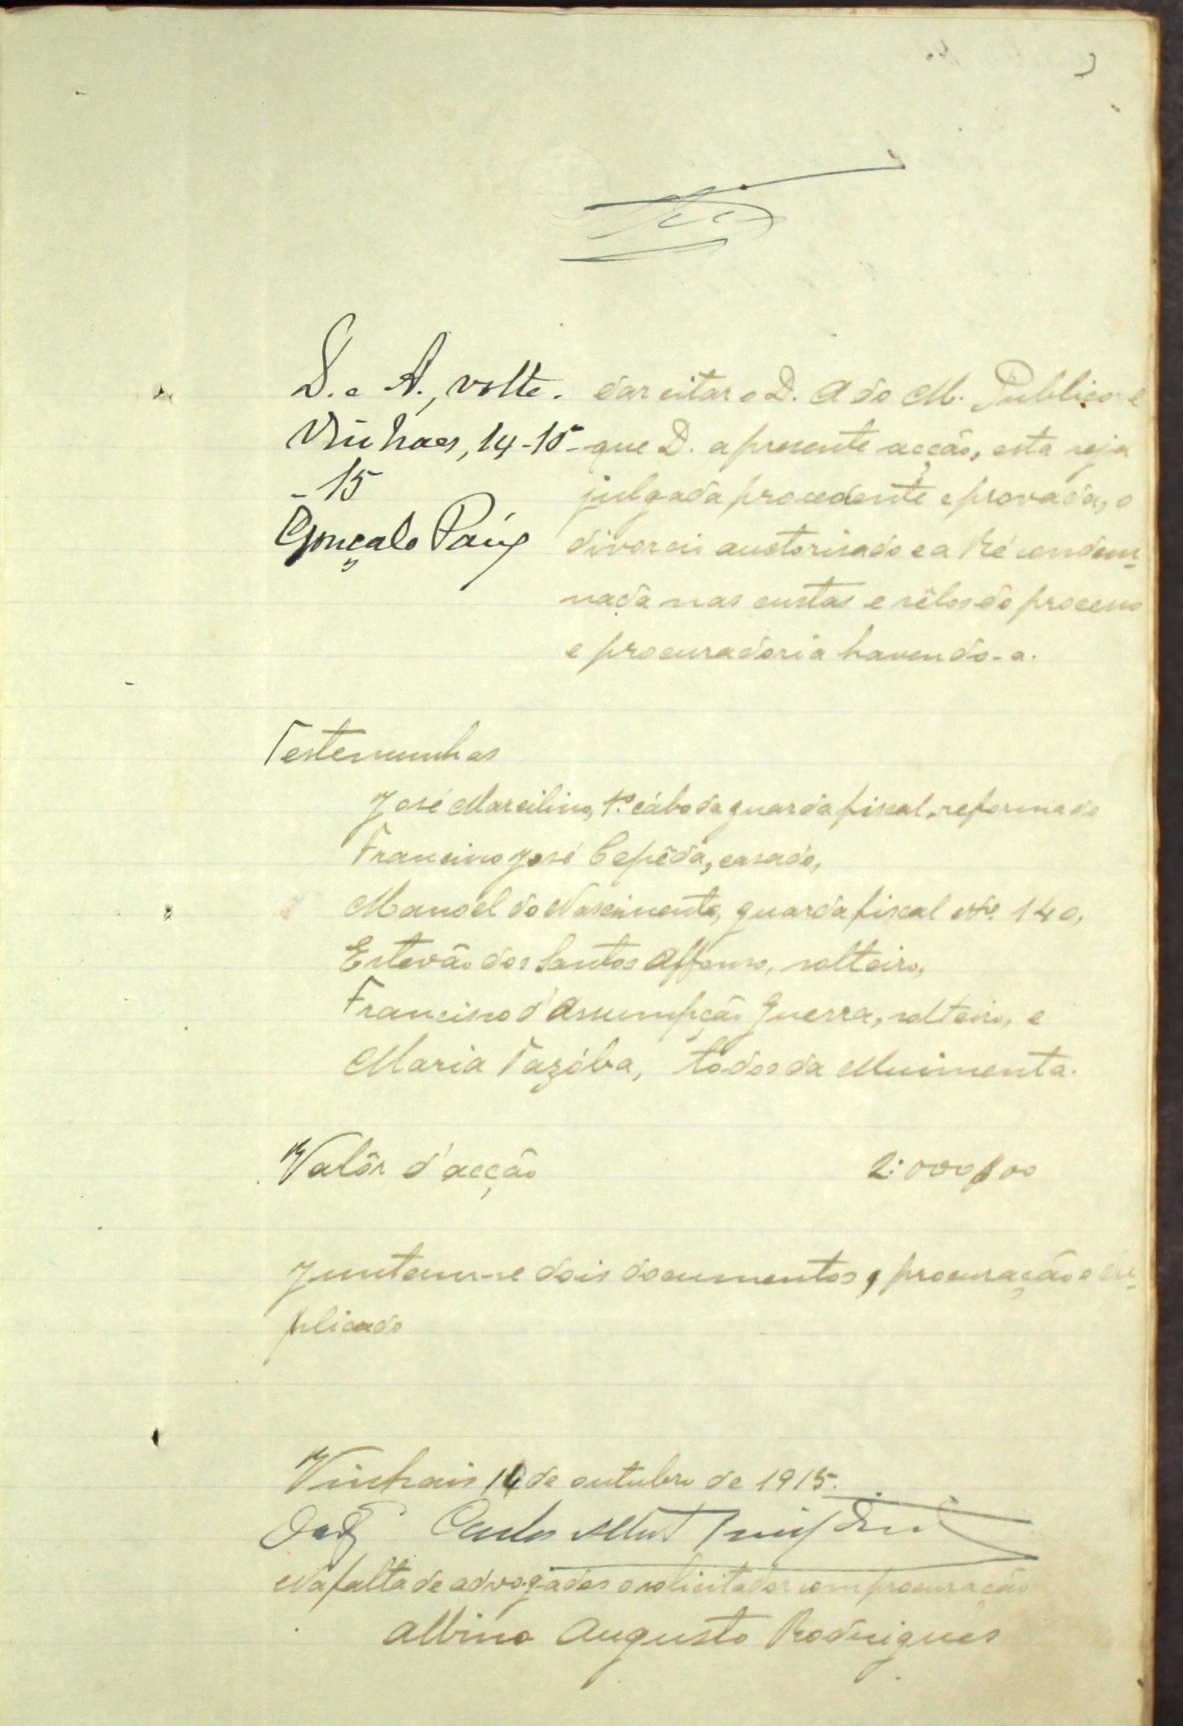 3
D. e A., volte.
Vinhaes, 14-10-
-15
Gonçalo Paiz
dar citar o D. A do M. Publico e
que D. a presente acção, esta seja
julgada procedente e provada, o
divorcio auctorisado e a Ré condem-
nada nas custas e sêlos do processo
e procuradoria havendo-a.
Testemunhas
José Marcilino, 1º cábo da guarda fiscal, reformado
Francisco José Cepêda, casado,
Manoel do Nascimento, guarda fiscal nº 140,
Estevão dos Santos Affonso, solteiro,
Francisco d'Assumpção Guerra, solteiro, e
Maria Tazóba, todos da Muimenta.
Valôr d'acção 2:000$00
Juntam-se dois documentos, procuração e du-
plicado
Vinhais 14 de outubro de 1915.
Carlos
Na falta de advogados o solicitador com procuração
Albino Augusto Rodrigues